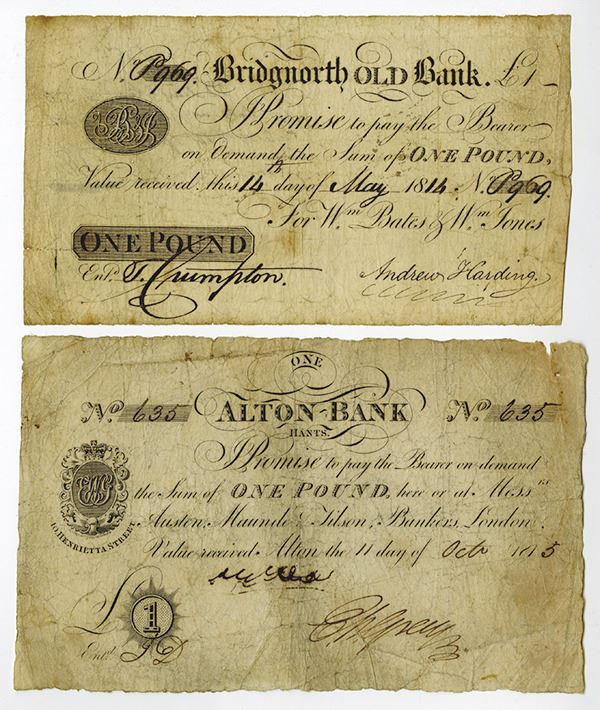 No. P969. Bridgnorth OLD Bank. £1
I Promise to pay the Bearer
on demand the Sum of ONE POUND,
Value received this 14 day of May 1814 No. P969.
For Wm Bates & Wm Jones
ONE POUND
Entd. T. Crumpton. Andrew Harding.
ONE
No 635 ALTON BANK No 635
HANTS.
I Promise to pay the Bearer on demand
the Sum of ONE POUND, here or at Messrs
Austen, Maunde & Tilson, Bankers, London.
10. HENRIETTA STREET.
Value received Alton the 11 day of Octr 1815
£ 1
Entd.